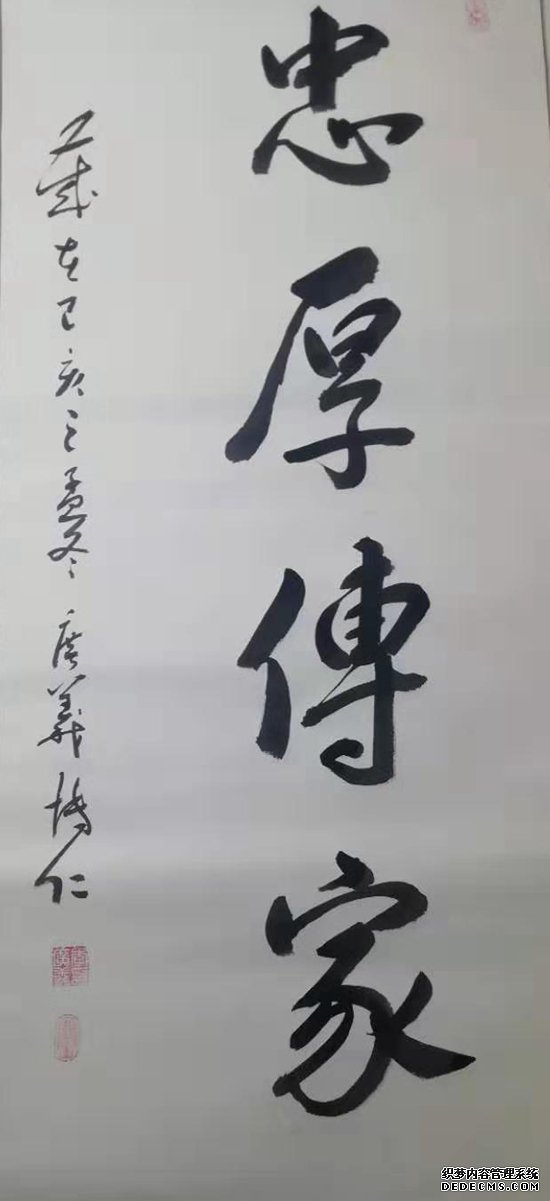 忠厚傳家
歲在己亥之孟冬 广義博仁
织梦内容管理系统
DEDECMS.COM